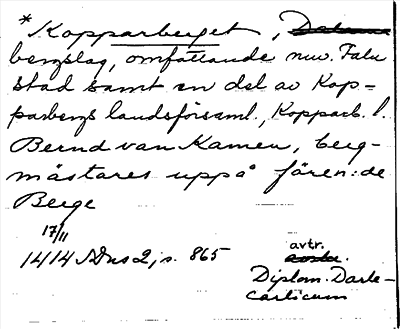 * Kopparberget,
bergslag, omfattande nuv. Falu
stad samt en del av Kop-
parbergs landsförsaml., Kopparb. l.
Bernd van Kamen, berg-
mästares uppå fören:de
Berge
17/11
1414 SDns 2, s. 865
avtr.
Diplom. Darle-
carlicum